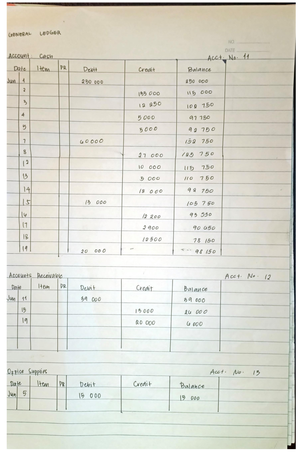 GENERAL LEDGER
ACCOUNT: Cash Acct. No. 11
Date Item PR Debit Credit Balance
Jan 1 250 000 250 000
2 135 000 115 000
3
4 5 000 97 750
5 5 000 92 750
7 60 000 152 750
8 27 000 125 750
12 10 000 115 750
13 5 000 110 750
14
15 15 000
16 12 200 93 550
17 2 900 90 650
18 12 500 78 150
19 20 000 98 150
Accounts Receivable Acct. No. 12
Date Item PR Debit Credit Balance
Jan 11
15 15 000
19 20 000
Office Supplies Acct. No. 13
Date Item PR Debit Credit Balance
Jan 5 15 000 15 000